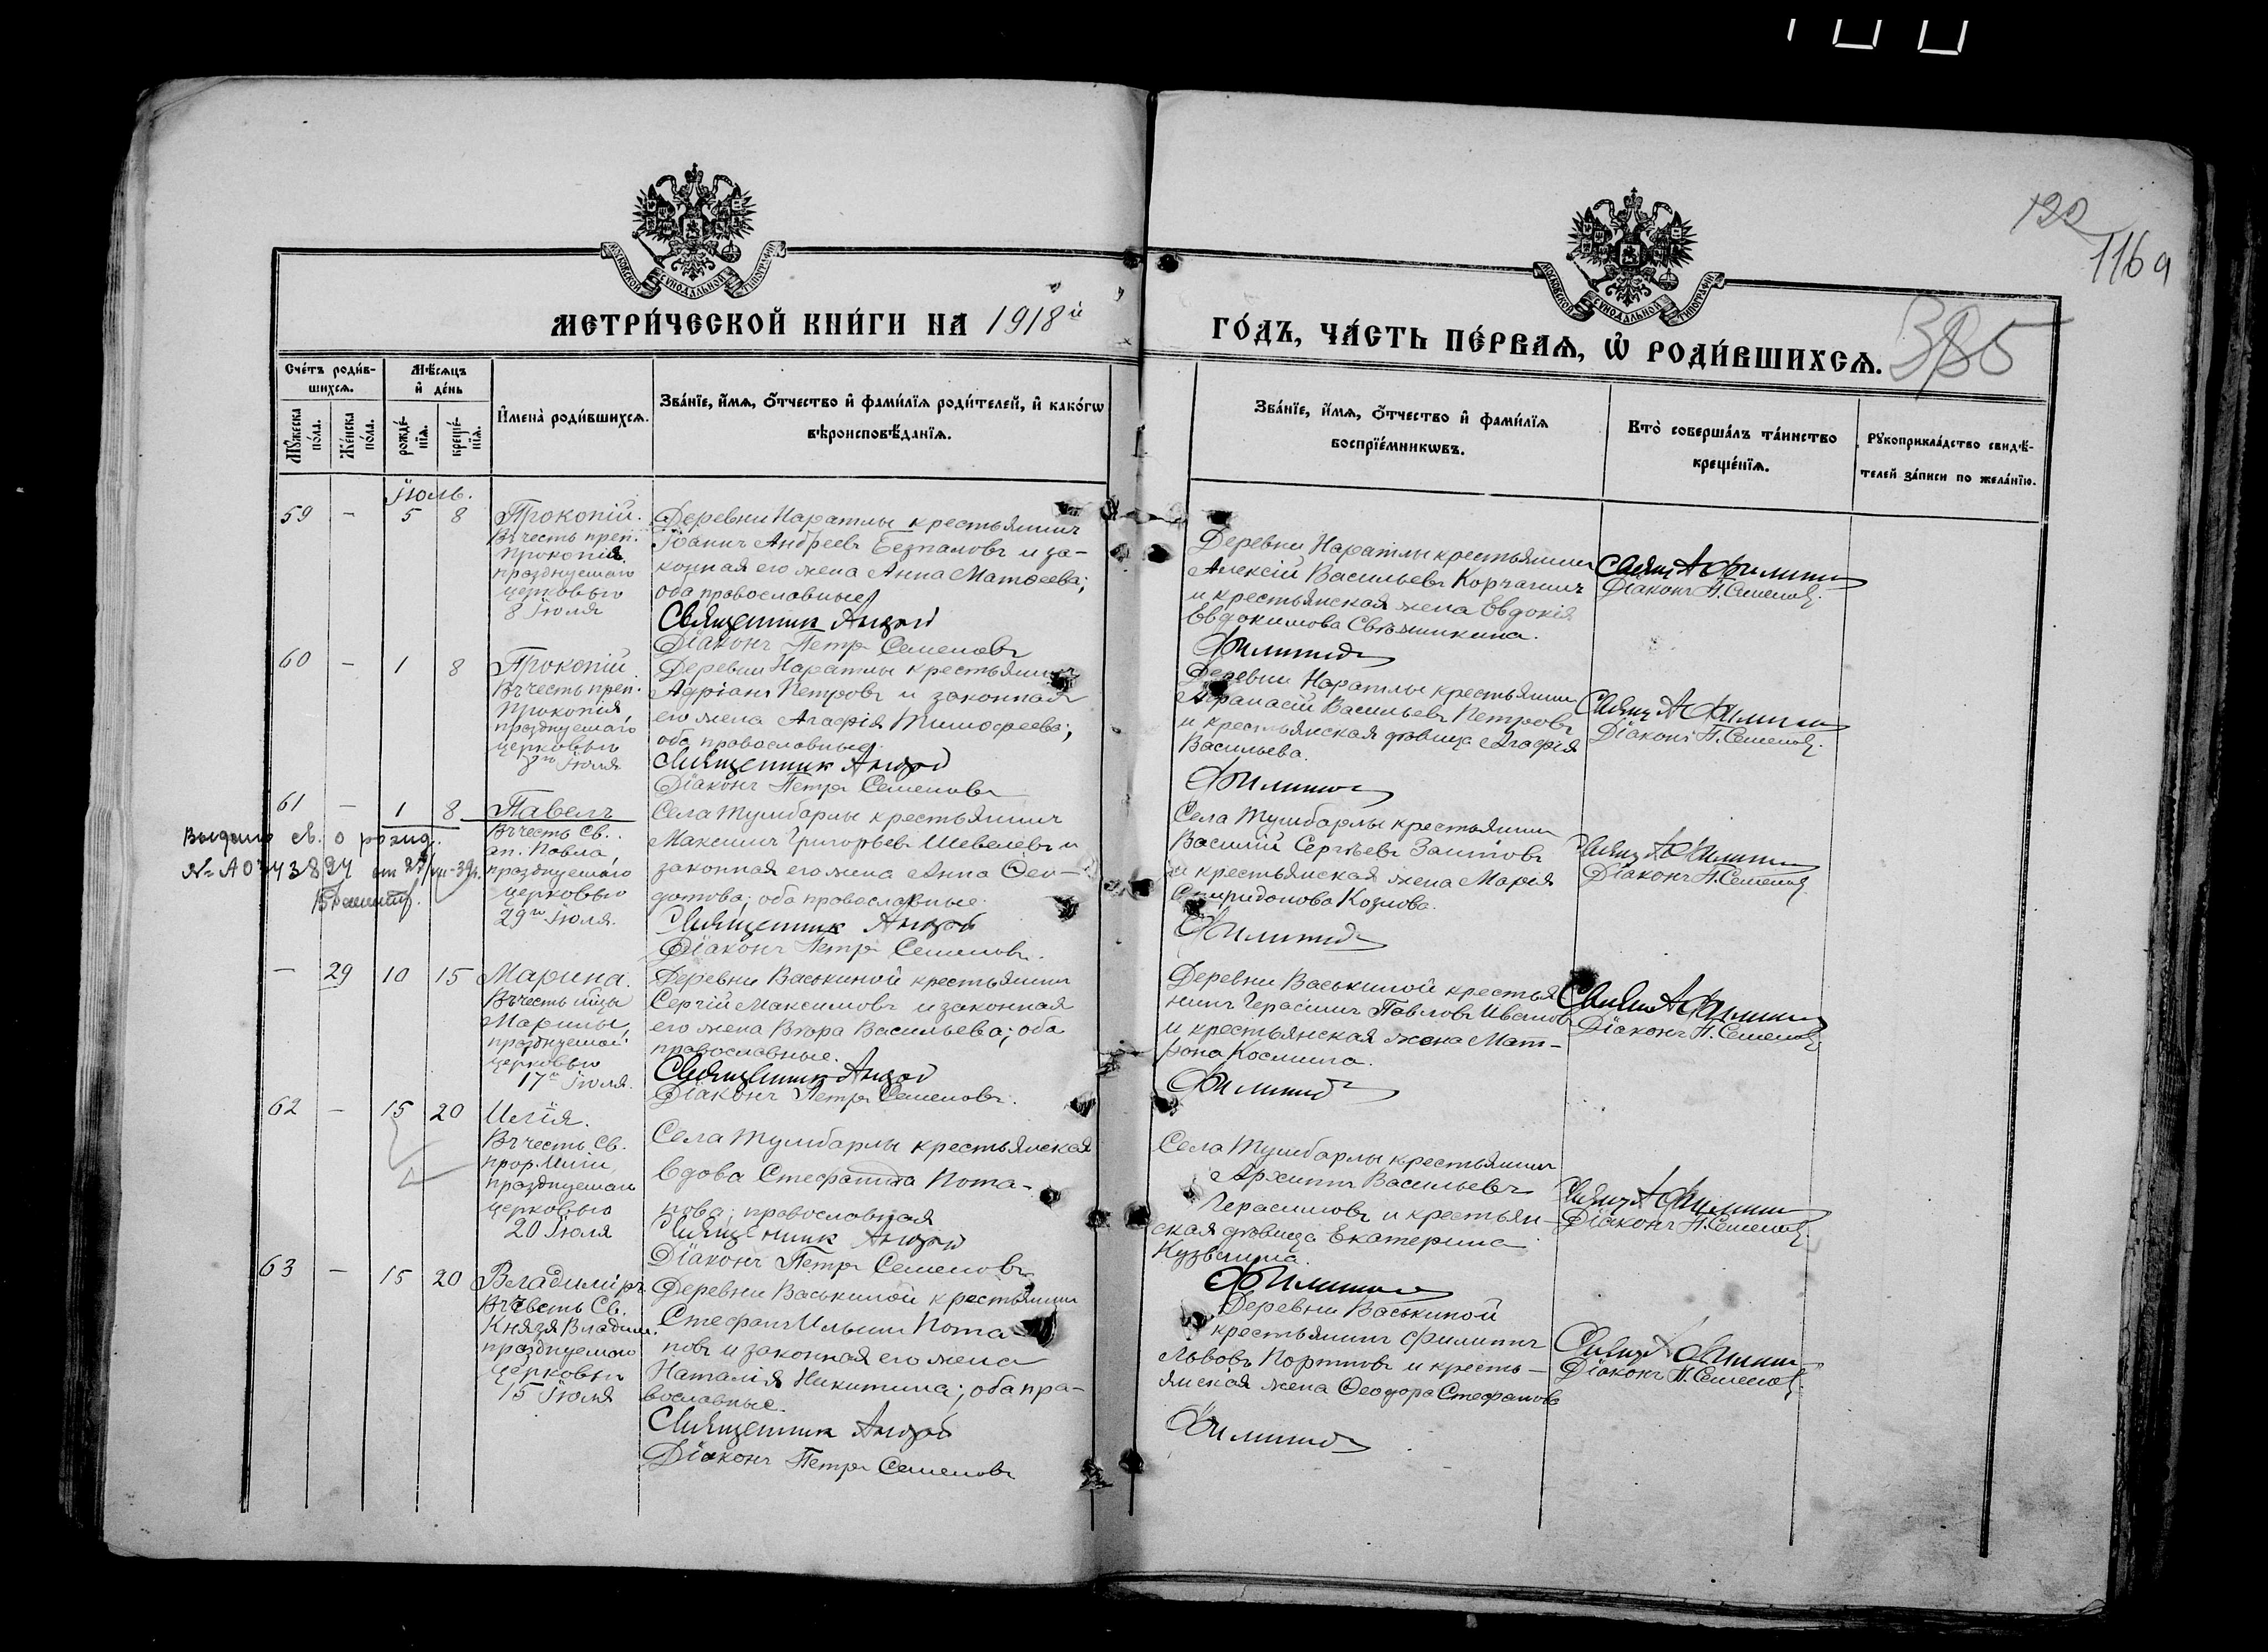 122
116 а
385
МОСКОВСКОЙ СѴНОДАЛЬНОЙ ТИПОГРАФІИ
МОСКОВСКОЙ СѴНОДАЛЬНОЙ ТИПОГРАФІИ
МЕТРИ́ЧЕСКОЙ КНИ́ГИ НА 1918й
ГО́ДЪ, ЧА́СТЬ ПЕ́РВАѦ, Ѡ҆ РОДИ́ВШИХСѦ.
Сче́тъ роди́в-
шихсѧ.
Мѣ́сѧцъ
и҆ де́нь
Мꙋжеска по́ла.
Же́нска по́ла.
рожде́-
нїѧ.
креще́-
нїѧ.
И҆мена̀ роди́вшихсѧ.
Зва́нїе, и҆́мѧ, ѻ҆́тчество и҆ фами́лїѧ роди́телей, и҆ како́гѡ
вѣроисповѣ́данїѧ.
Зва́нїе, и҆́мѧ, ѻ҆́тчество и҆ фами́лїѧ
воспрїе́мникѡвъ.
Кто̀ соверша́лъ та́инство
креще́нїѧ.
Рꙋкоприкла́дство свидѣ́-
телей за́писи по жела́нїю.
Іюль.
59 - 5 8 Прокопій.
Въ честь преп.
Прокопія
празднуемаго
церковью
8 Іюля
Деревни Наратлы крестьянинъ
Іоаннъ Андреевъ Безпаловъ и за-
конная его жена Анна Матѳеева;
оба православные
Священник Андрей
Діаконъ Петръ Семеновъ
Деревни Наратлы крестьянинъ
Алексій Васильевъ Корчагинъ
и крестьянская жена Евдокія
Евдокимова Свѣчникина.
Филиппов
Свящ А Филиппов
Діаконъ П. Семеновъ.
60 - 1 8 Прокопій.
Въ честь преп.
Прокопія,
празднуемаго
церковью
Іюля
Деревни Наратлы крестьянинъ
Адріанъ Петровъ и законная
его жена Агафія Тимофеева;
оба православные.
Священник Андрей
Діаконъ Петръ Семеновъ
Деревни Наратлы крестьянин
Афанасій Васильевъ Петровъ
и крестьянская дѣвица Агафія
Васильева.
Филиппов
Свящ А Филиппов
Діаконъ П. Семеновъ.
61 - 1 8 Павелъ
Въ честь Св.
ап. Павла,
празднуемаго
церковью
29го Іюля.
Выдано св. о рожд.
Села Тумбарлы крестьянинъ
Максимъ Григорьевъ Шевелевъ и
законная его жена Анна Ѳео-
дотова; оба православные.
Священник Андрей
Діаконъ Петръ Семеновъ.
Села Тумбарлы крестьянин
Василій Сергѣевъ Заитовъ
и крестьянская жена Марія
Спиридонова Козлова.
Филиппов
Свящ А Филиппов
Діаконъ П. Семеновъ
- 29 10 15 Марина.
Въ честь мцы
Марины,
празднуемой
церковью
17го Іюля.
Деревни Васькиной крестьянинъ
Сергій Максимовъ и законная
его жена Вѣра Васильева; оба
православные.
Священник Андрей
Діаконъ Петръ Семеновъ.
Деревни Васькиной крестья
нинъ Герасимъ Павловъ Ивановъ
и крестьянская жена Мат-
рона Космина.
Филиппов
Свящ А Филиппов
Діаконъ П. Семеновъ
62 - 15 20 Илія.
Въ честь Св.
прор. Иліи,
празднуемаго
церковью
20 Іюля
Села Тумбарлы крестьянская
вдова Стефанида Пота-
пова; православная
Священник Андрей
Діаконъ Петръ Семеновъ
Села Тумбарлы крестьянинъ
Архиппъ Васильевъ
Герасимовъ и крестьян-
ская дѣвица Екатерина
Кузьмина.
Филиппов
Свящ А Филиппов
Діаконъ П. Семеновъ.
63 - 15 20 Владиміръ.
Въ честь Св.
Князя Владим.
празднуемаго
церковью
15 Іюля
Деревни Васькиной крестьянин
Стефанъ Ильинъ Пота-
повъ и законная его жена
Наталія Никитина; оба пра-
вославные.
Священник Андрей
Діаконъ Петръ Семеновъ
Деревни Васькиной
крестьянинъ Филиппъ
Львовъ Портновъ и кресть-
янская жена Ѳеодора Стефанова
Филиппов
Свящ А Филиппов
Діаконъ П. Семеновъ.